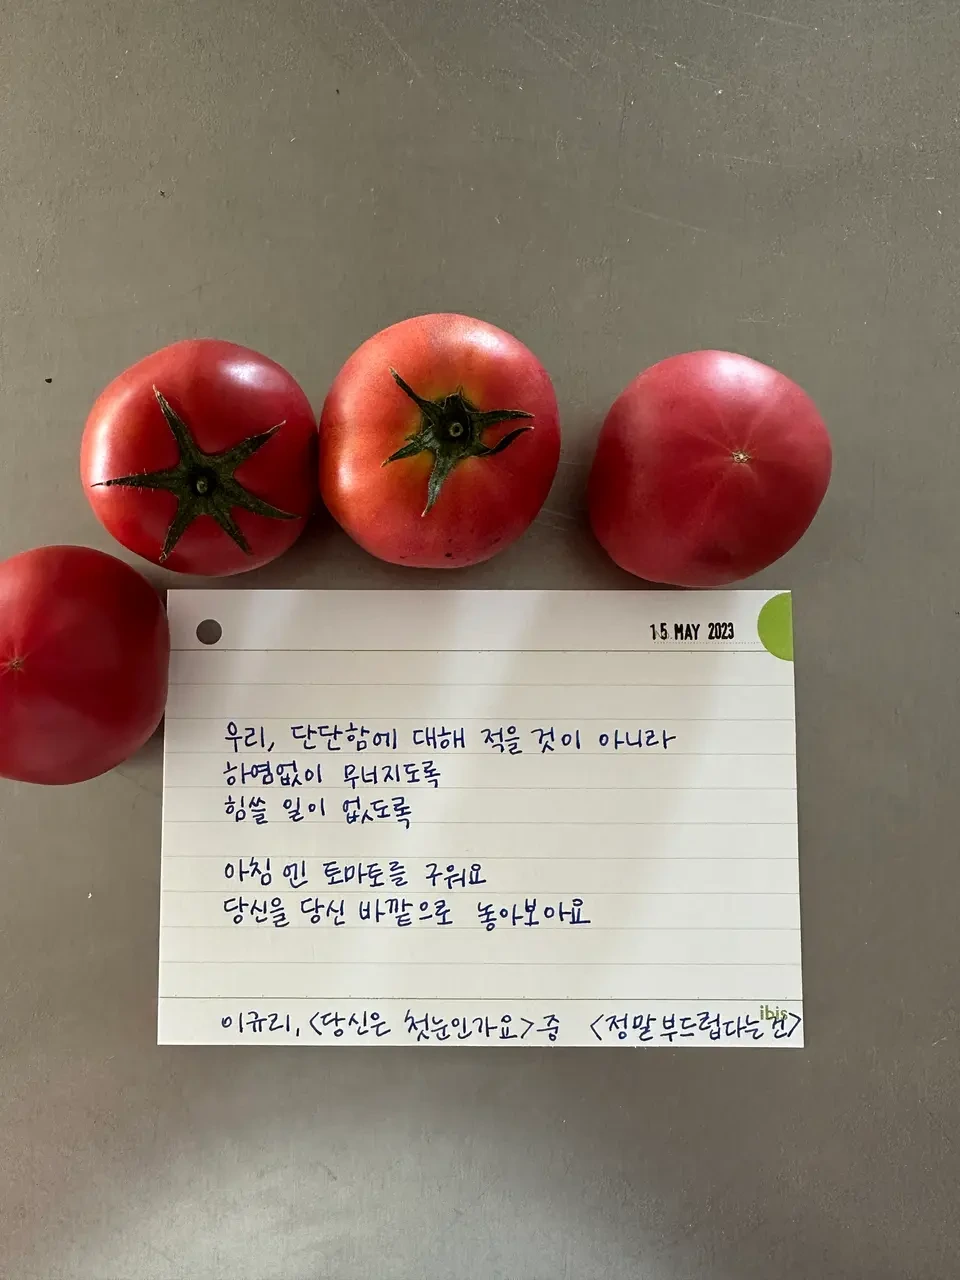 15 MAY 2023
우리, 단단함에 대해 적을 것이 아니라
하염없이 무너지도록
힘쓸 일이 없도록
아침엔 토마토를 구워요
당신을 당신 바깥으로 놓아보아요
ibis
이규리, <당신은 첫눈인가요> 중 <정말 부드럽다는 건>